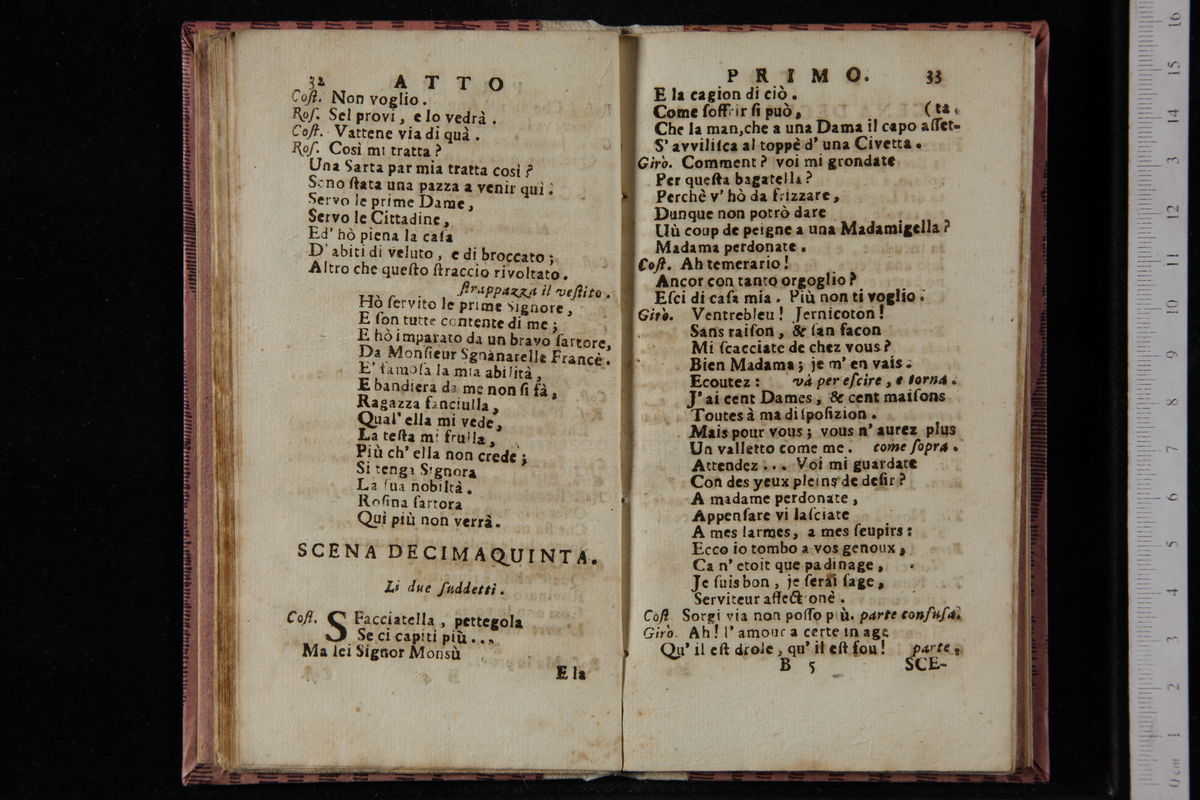 32 ATTO
Coſt. Non voglio.
Roſ. Sel provi, e lo vedrà.
Coſt. Vattene via di quà.
Roſ. Così mi tratta?
Una Sarta par mia tratta così?
Sono ſtata una pazza a venir quì.
Servo le prime Dame,
Servo le Cittadine,
Ed' hò piena la caſa
D'abiti di veluto, e di broccato;
Altro che queſto ſtraccio rivoltato.
ſtrappazza il veſtito.
Hò ſervito le prime Signore,
E ſon tutte contente di me;
E hò imparato da un bravo ſartore,
Da Monſieur Sgnanarelle Francè.
E' famoſa la mia abilità,
E bandiera da me non ſi fà,
Ragazza fanciulla,
Qual' ella mi vede,
La teſta mi frulla,
Più ch' ella non crede;
Si tenga Signora
La ſua nobiltà.
Roſina ſartora
Quì più non verrà.
SCENA DECIMAQUINTA.
Li due ſuddetti.
Coſt. SFacciatella, pettegola
Se ci capiti più...
Ma lei Signor Monsù
E la
PRIMO. 33
E la cagion di ciò.
Come ſoffrir ſi può, (ta.
Che la man, che a una Dama il capo aſſet-
S' avviliſca al toppè d' una Civetta.
Girò. Comment? voi mi grondate
Per queſta bagatella?
Perchè v' hò da frizzare,
Dunque non potrò dare
Uù coup de peigne a una Madamigella?
Madama perdonate.
Coſt. Ah temerario!
Ancor con tanto orgoglio?
Eſci di caſa mia. Più non ti voglio.
Girò. Ventrebleu! Jernicoton!
Sans raiſon, & ſan facon
Mi ſcacciate de chez vous?
Bien Madama; je m' en vais.
Ecoutez: và per eſcire, e torna.
J' ai cent Dames, & cent maiſons
Toutes à ma diſpoſizion.
Mais pour vous; vous n' aurez plus
Un valletto come me. come ſopra.
Attendez... Voi mi guardate
Con des yeux pleins de deſir?
A madame perdonate,
Appenſare vi laſciate
A mes larmes, a mes ſeupirs:
Ecco io tombo a vos genoux,
Ca n' etoit que padinage,
Je ſuis bon, je ſerai ſage,
Serviteur affectionè.
Coſt. Sorgi via non poſſo più. parte confuſa.
Girò. Ah! l' amour a certe in age
Qu' il eſt drole, qu' il eſt fou! parte.
B 5 SCE-